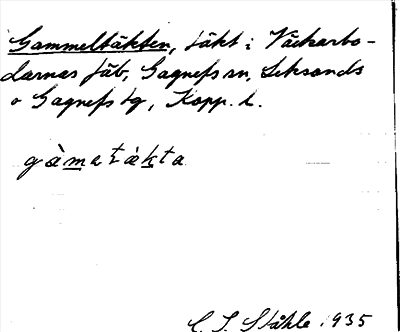 Gammeltäkten, täkt i Väckarbo-
darnas fäb, Gagnefs sn, Leksands
o Gagnefs tg, Kopp. l.
gàmatàkta
C. I. Ståhle 1935